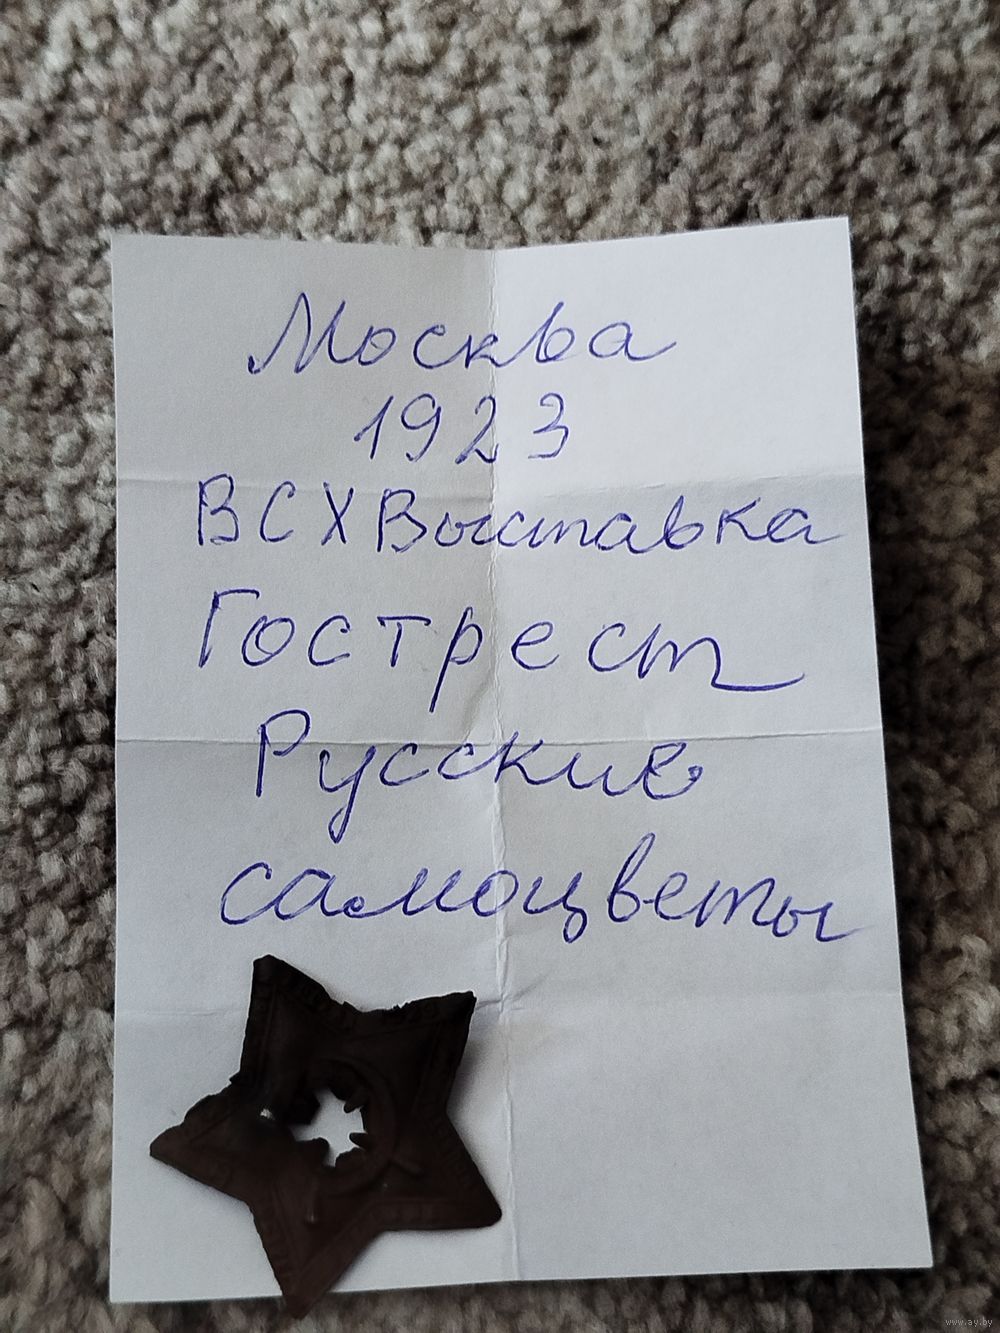 Москва
1923
ВСХВыставка
Гострест
Русские
самоцветы
www.ay.by